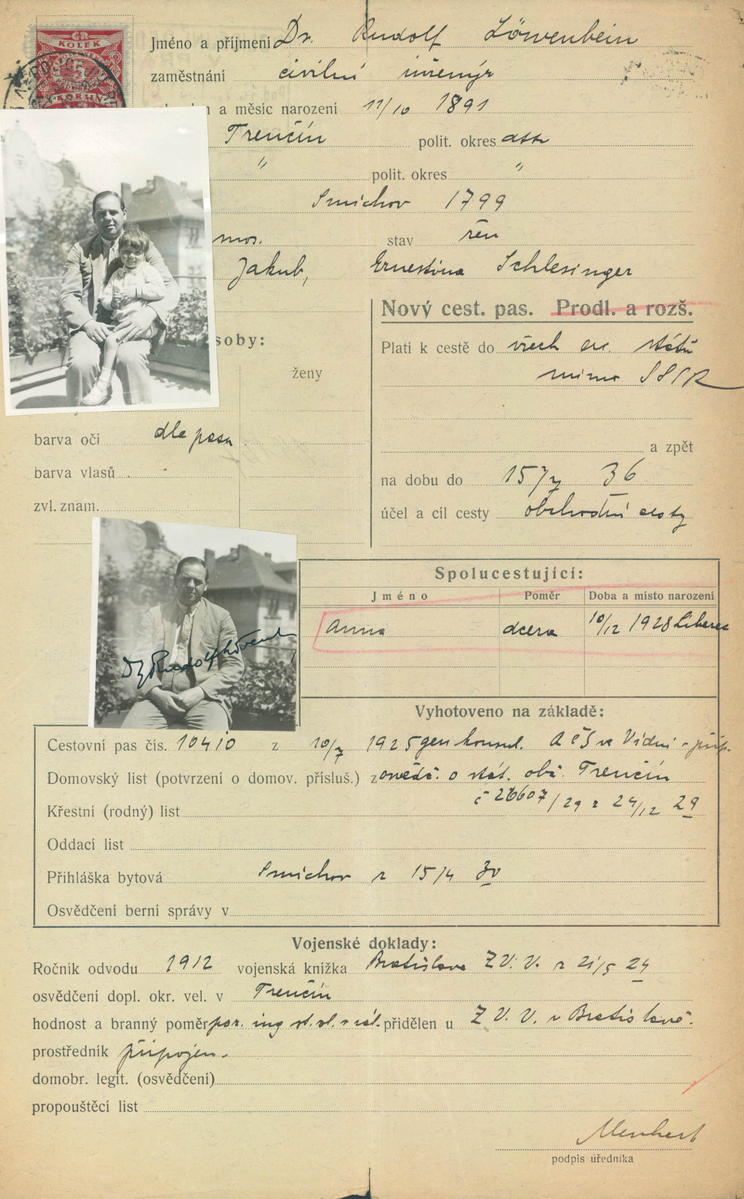 GR
KOLEK
5
KORUN
Jméno a příjmení Dr. Rudolf Löwenbein
zaměstnání civilní inženýr
a měsíc narození 11/10 1891
Trenčín polit. okres dtto
" polit. okres "
Smíchov 1799
mos. stav žen
Jakub, Ernestina Schlesinger
Nový cest. pas. Prodl. a rozš.
soby:
Platí k cestě do všech ev. států
ženy
mimo SSSR
barva očí dle pasu
a zpět
barva vlasů
na dobu do 15/7 36
zvl. znam.
účel a cíl cesty obchodní cesty
Spolucestující:
Jméno Poměr Doba a místo narození
Anna dcera 10/12 1928 Liberec
Dr Rudolf Löwenb
Vyhotoveno na základě:
Cestovní pas čís. 10410 z 10/7 1925 gen. konsul. RČS ve Vídni - příp.
Domovský list (potvrzení o domov. přísluš.) z osvědč. o stát. obč. Trenčín
Křestní (rodný) list č 26607/29 z 24/12 29
Oddací list
Přihláška bytová Smíchov z 15/4 30
Osvědčení berní správy v
Vojenské doklady:
Ročník odvodu 1912 vojenská knížka Bratislava Z.V.V. z 21/5 24
osvědčení dopl. okr. vel. v Trenčín
hodnost a branný poměr por. ing. přidělen u Z.V.V. v Bratislavě.
prostředník připojen.
domobr. legit. (osvědčení)
propouštěcí list
podpis úředníka